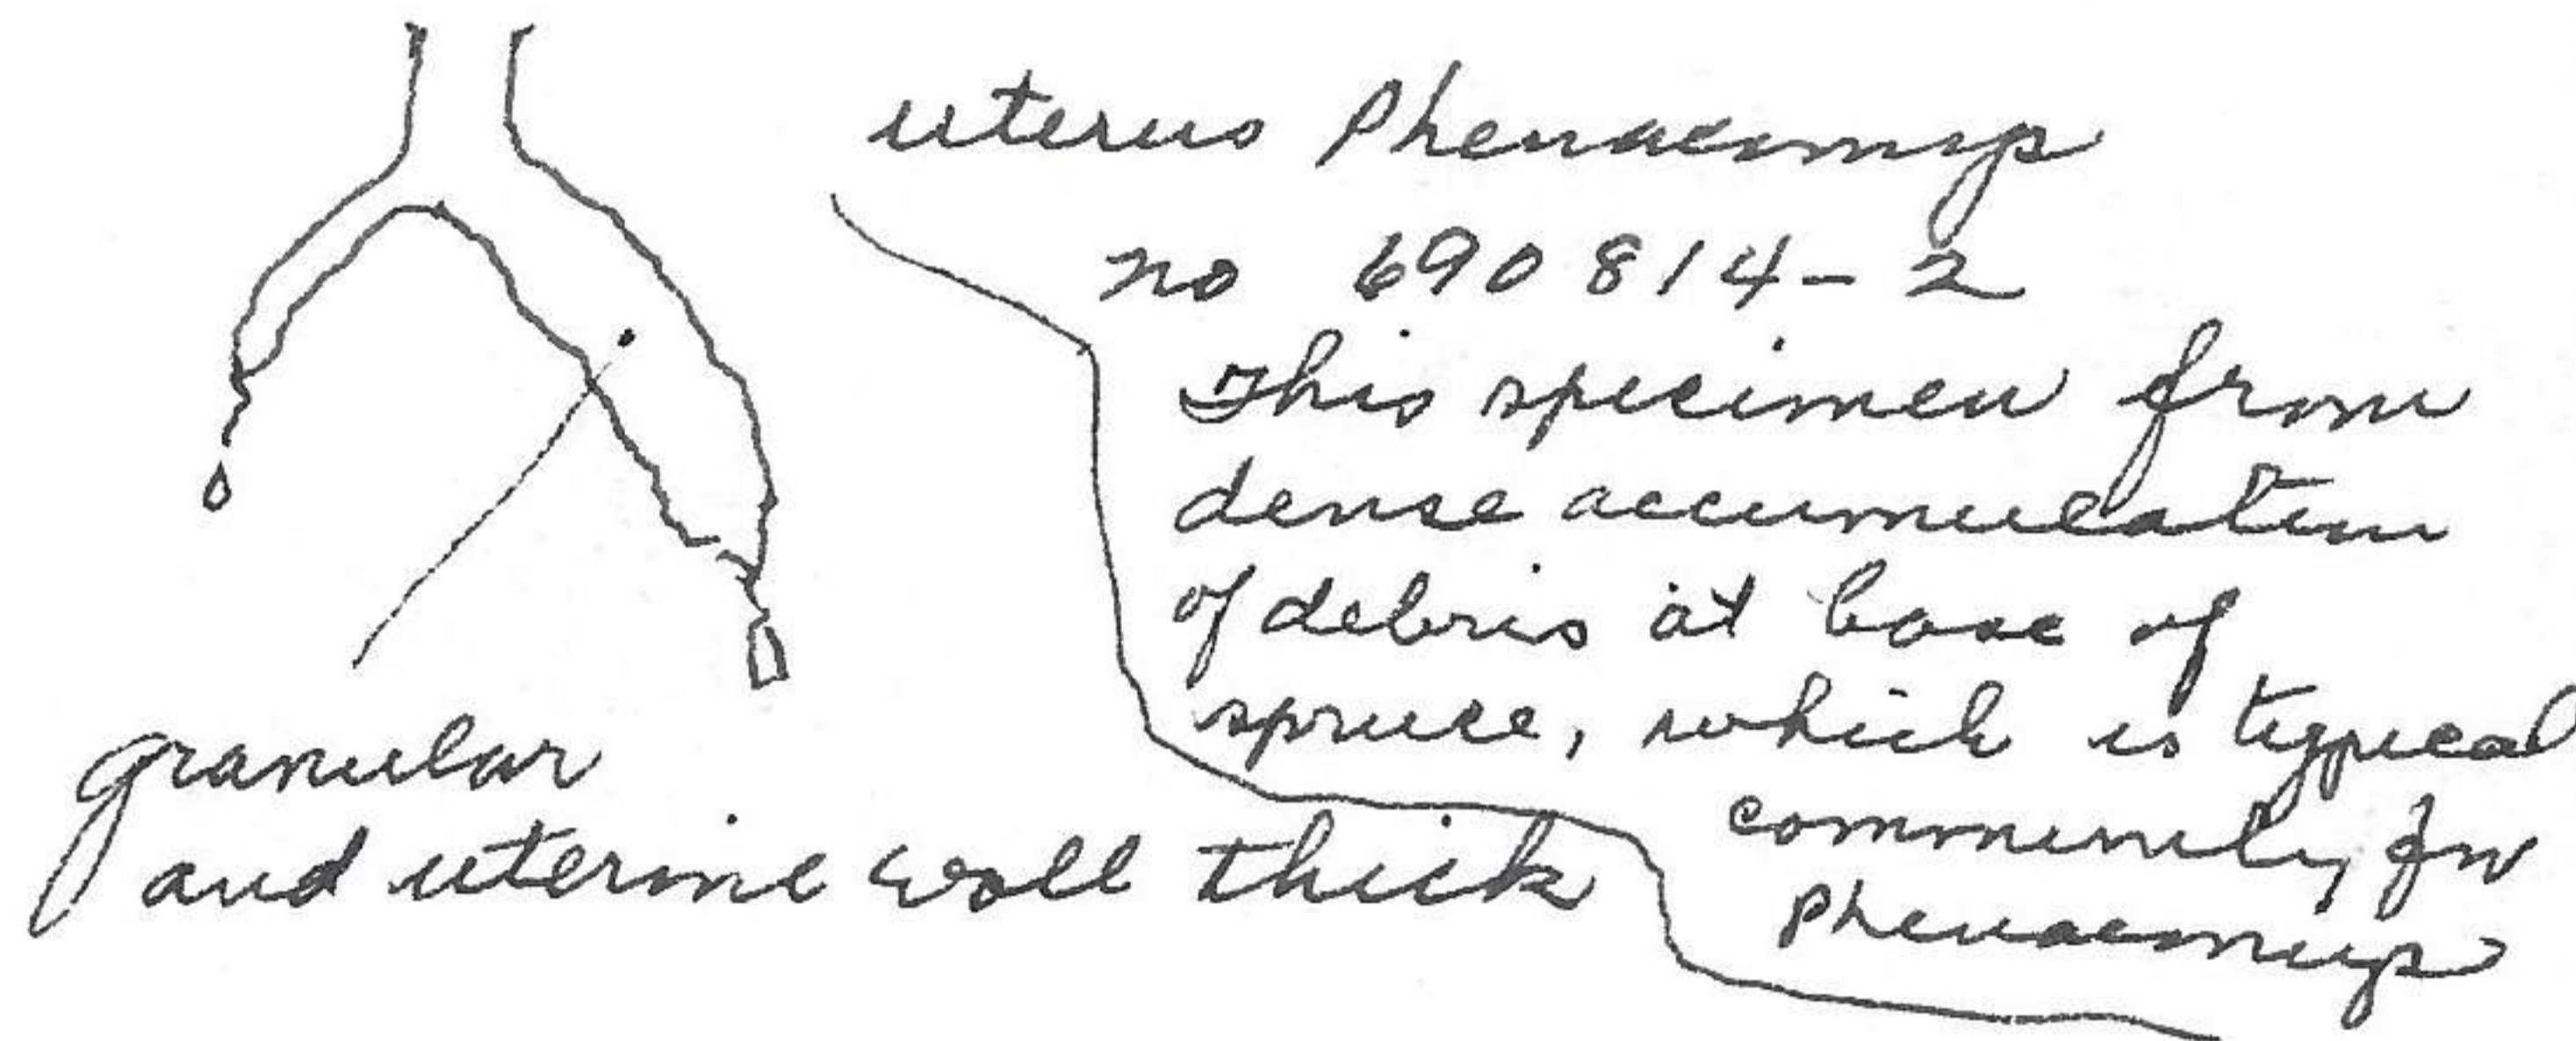 uterus Phenacomys
no 690814-2
This specimen from
dense accumulation
of debris at base of
spruce, which is typical
community for
Phenacomys
granular
and uterine wall thick